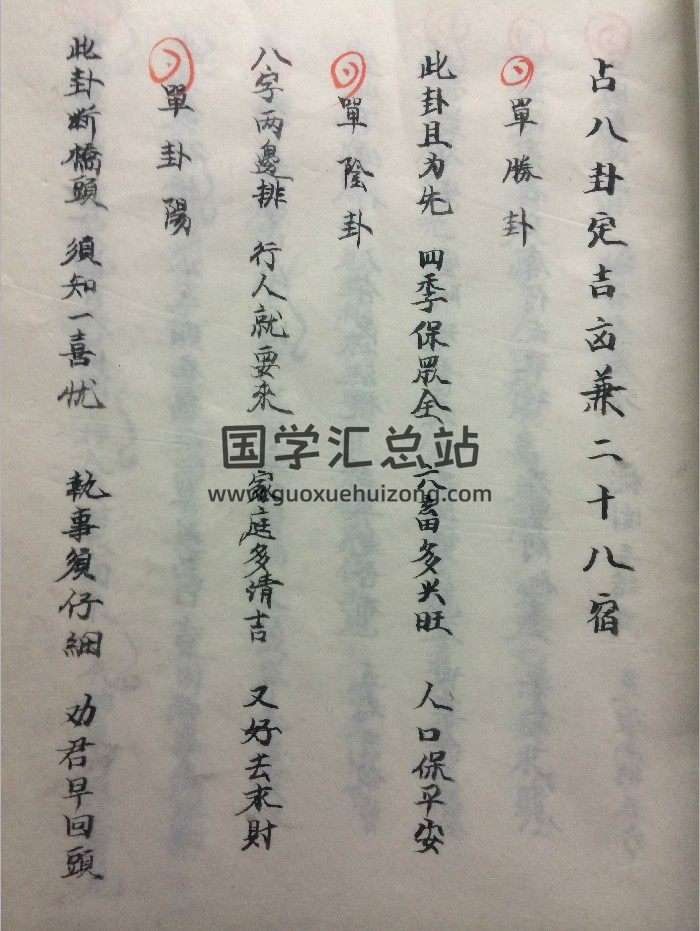 占八卦定吉凶兼二十八宿
單勝卦
此卦且为先 四季保眾全 六畜多兴旺 人口保平安
單陰卦
八字两邊排 行人就要來 家庭多清吉 又好去求財
單卦陽
此卦断橋頭 須知一喜忧 執事須仔細 劝君早回頭
国学汇总站
www.guoxuehuizong.com